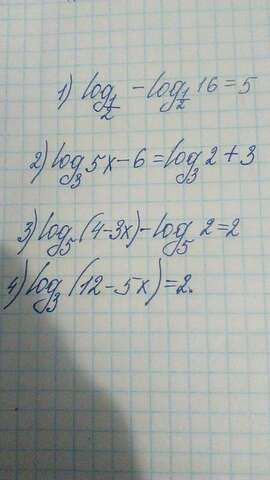 1) log½ - log½ 16 = 5
2) log₃ 5x - 6 = log₃ 2 + 3
3) log₅ (4 - 3x) - log₅ 2 = 2
4) log₃ (12 - 5x) = 2.